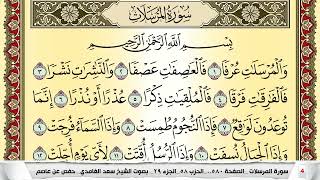 سورة المرسلات
بسم الله الرحمن الرحيم
والمرسلات عرفا ١ فالعاصفات عصفا ٢ والناشرات نشرا ٣
فالفارقات فرقا ٤ فالملقيات ذكرا ٥ عذرا أو نذرا ٦ إنما
توعدون لواقع ٧ فإذا النجوم طمست ٨ وإذا السماء فرجت ٩
وإذا الجبال نسفت ١٠ وإذا الرسل أقتت ١١ لأي يوم أجلت ١٢
4 سورة المرسلات .. الصفحة ٥٨٠ .. الحزب ٥٨ .. الجزء ٢٩ .. بصوت الشيخ سعد الغامدي .. حفص عن عاصم